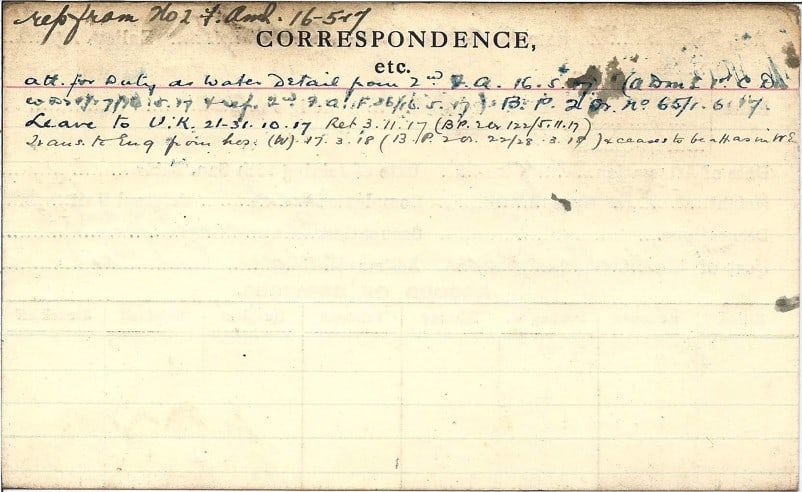 rep from No 2 F. Amb. 16-5-17
CORRESPONDENCE,
etc.
att. for Duty as Water Detail from 2nd F.A. 16.5.17) (ADMS 1st C D
5.17 & ref. 2nd F.A. F 36/16.5.17) B.P. 2 Or. No 65/1.6.17.
Leave to U.K. 21-31.10.17 Ret 3.11.17 (B.P. 2 Or 122/5.11.17)
Trans. to Eng from hos. (W) 17.3.18 (B.P. 2 Or. 22/28.3.18) & ceases to be att as in W E